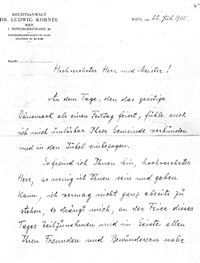 RECHTSANWALT
DR. LUDWIG KORNEL
WIEN
WIEN, am 22. Juli 19
Hochverehrter Herr und Meister!
An dem Tage, den das geistige
Dänemark als einen Festtag feiert, fühle auch
ich mich unlösbar Ihrer Gemeinde verbunden
und in den Zirkel einbezogen.
So fremd ich Ihnen bin, hochverehrter
Herr, so wenig ich Ihnen sein und geben
kann, ich vermag nicht ganz abseits zu
stehen, es drängt mich, an der Feier dieses
Tages teilzunehmen und im Geiste allen
Ihren Freunden und Bewunderern nahe